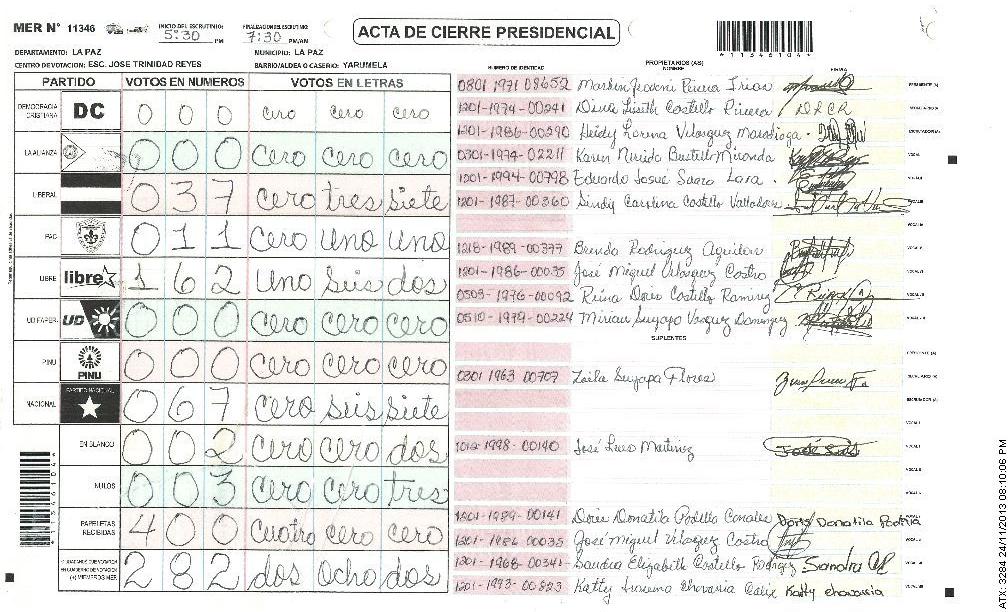 MER Nº 11346
INICIO DEL ESCRUTINIO: 5:30 PM
FINALIZACION DEL ESCRUTINIO: 7:30 PM/AM
ACTA DE CIERRE PRESIDENCIAL
11346104
DEPARTAMENTO: LA PAZ
MUNICIPIO: LA PAZ
CENTRO DE VOTACION: ESC. JOSE TRINIDAD REYES
BARRIO/ALDEA O CASERIO: YARUMELA
PARTIDO VOTOS EN NUMEROS VOTOS EN LETRAS
DEMOCRACIA CRISTIANA DC 0 0 0 cero cero cero
LA ALIANZA 0 0 0 cero cero cero
LIBERAL 0 3 7 cero tres siete
PAC 0 1 1 cero uno uno
LIBRE libre 1 6 2 uno seis dos
UD FAPER UD 0 0 0 cero cero cero
PINU PINU 0 0 0 cero cero cero
NACIONAL PARTIDO NACIONAL 0 6 7 cero seis siete
EN BLANCO 0 0 2 cero cero dos
NULOS 0 0 3 cero cero tres
PAPELETAS RECIBIDAS 4 0 0 cuatro cero cero
(+) MIEMBROS MER 2 8 2 dos ocho dos
NUMERO DE IDENTIDAD
PROPIETARIOS (AS)
NOMBRE
FIRMA
0801 1971 08652
1201-1974-00241 Dina Liseth Castillo Rivera D.L.C.R
1201-1986-00290 Heidy Lorena Velasquez
0301-1974-02211 Karen Bustillo Miranda
1201-1994-00798 Eduardo Josué Lara
1201-1987-00360 Sindy Carolina Castillo
1218-1989-00377 Brenda Rodriguez Aguilar
1201-1986-00035 José Miguel Velasquez Castro
0503-1976-00092 Reina Doris Castillo Ramirez
0510-1979-00224 Miriam Suyapa Vasquez Dominguez
SUPLENTES
0301 1963 00707 Suyapa Flores
1998-00140 José Luis Martinez José Luis
1201-1989-00141 Doris Donatila Padilla Canales Doris Donatila Padilla
1201-1986 00035 José Miguel Velasquez Castro
1201-1968-00341 Sandra Elizabeth Castillo Sandra
1201-1993-00823 Katty Chavarria Katty chavarria
ATX-3284 24/11/2013 08:10:06 PM